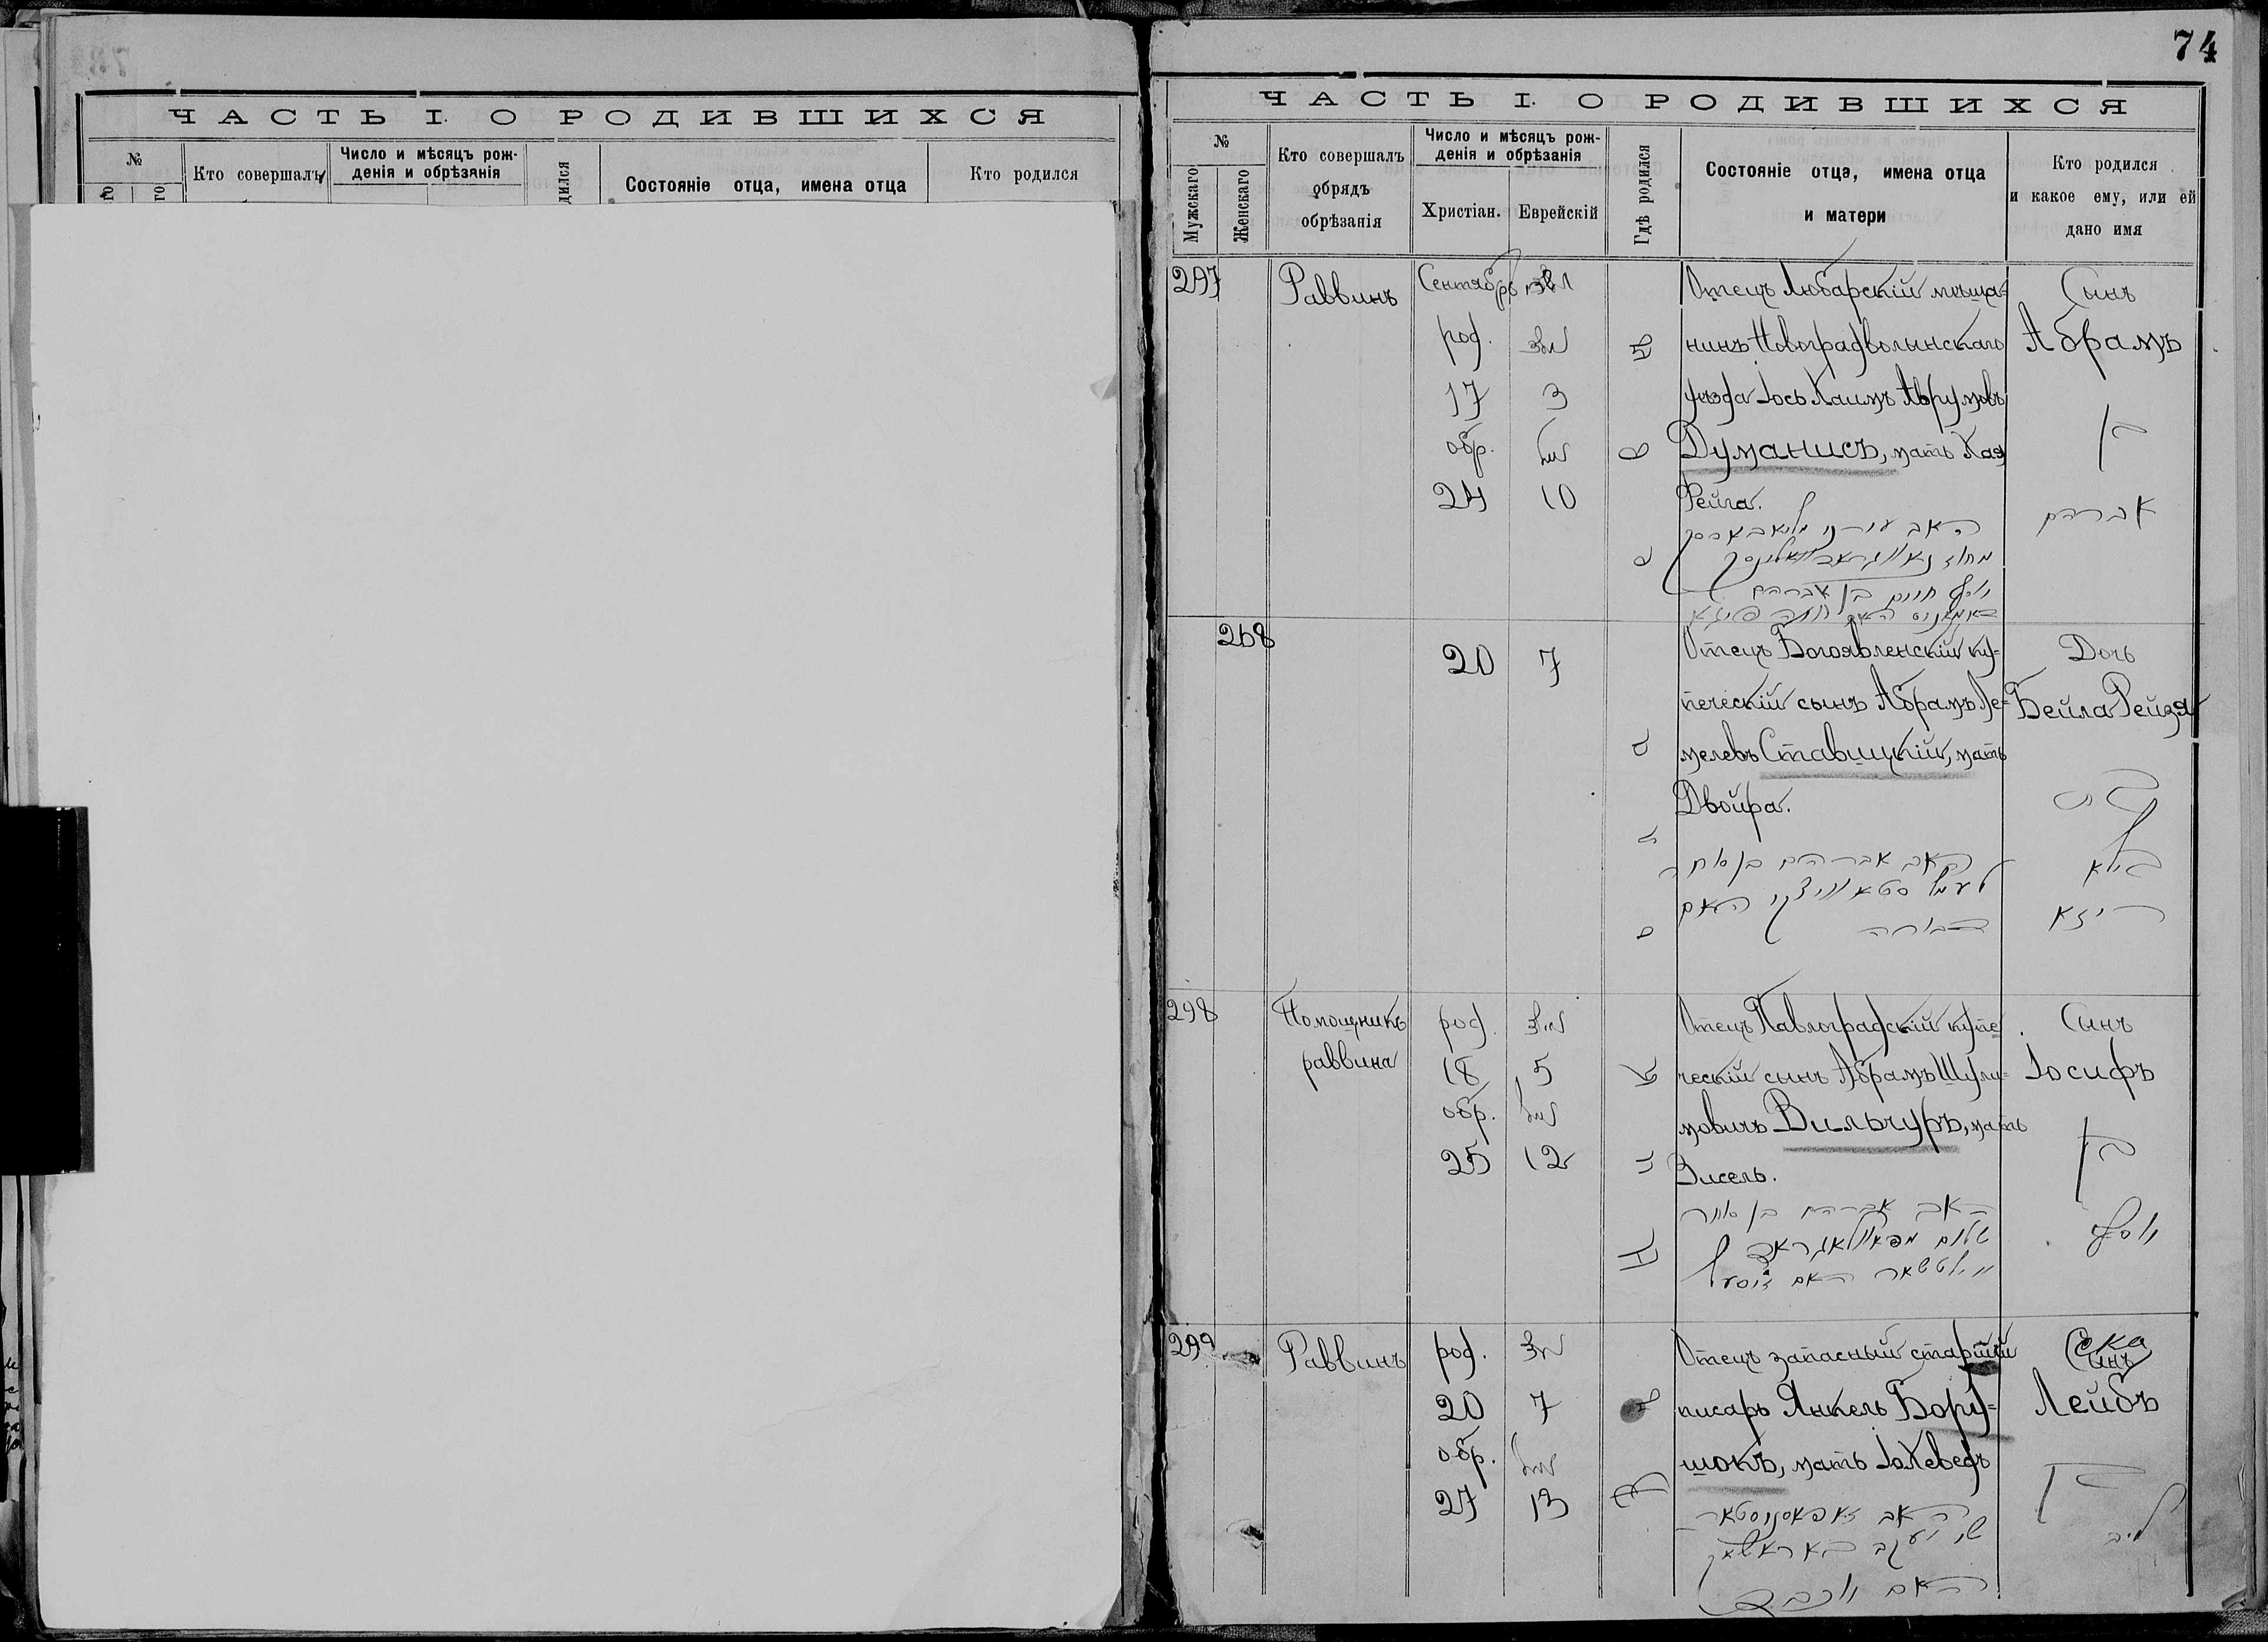 ЧАСТЬ I. О РОДИВШИХСЯ
№
Кто совершалъ
Число и мѣсяцъ рож-
денія и обрѣзанія
Состояніе отца, имена отца
Кто родился
74
ЧАСТЬ I. О РОДИВШИХСЯ
№
Мужскаго
Женскаго
Кто совершалъ
обрядъ
обрѣзанія
Число и мѣсяцъ рож-
денія и обрѣзанія
Христіан.
Еврейскій
Гдѣ родился
Состояніе отца, имена отца
и матери
Кто родился
и какое ему, или ей
дано имя
297
Раввинъ
Сентябрь
род.
17 3
обр.
24 10
Отецъ Любарскій мѣща-
нинъ Новоградволынскаго
уѣзда Іось Хаимъ Аврумовъ
Думанисъ, мать Хая
Рейза.
Сынъ
Абрамъ
בן
אברהם
268
20 7
Отецъ Богоявленскій ку-
печескій сынъ Абрамъ Ле-
мелевъ Ставицкій, мать
Двойра.
האב אברהם בן סוחר
לעמל סטאוויצקי האם
דבורה
Дочь
Бейла Рейзя
בת
ביילא
רייזא
298
Помощникъ
раввина
род.
18 5
обр.
25 12
Отецъ Павлоградскій купе
ческій сынъ Абрамъ Шули-
мовичъ Вильчуръ, мать
Зисель.
האב אברהם בן סוחר
Сынъ
Іосифъ
בן
יוסף
299
Раввинъ
род.
20 7
обр.
27 13
Отецъ запасный старшій
писарь Янкель Бору-
шокъ, мать Іохеведъ
Сынъ
Лейбъ
בן
ליב